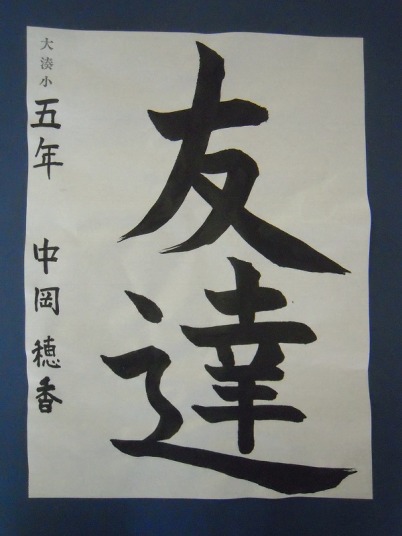 友達
大湊小 五年 中岡穂香